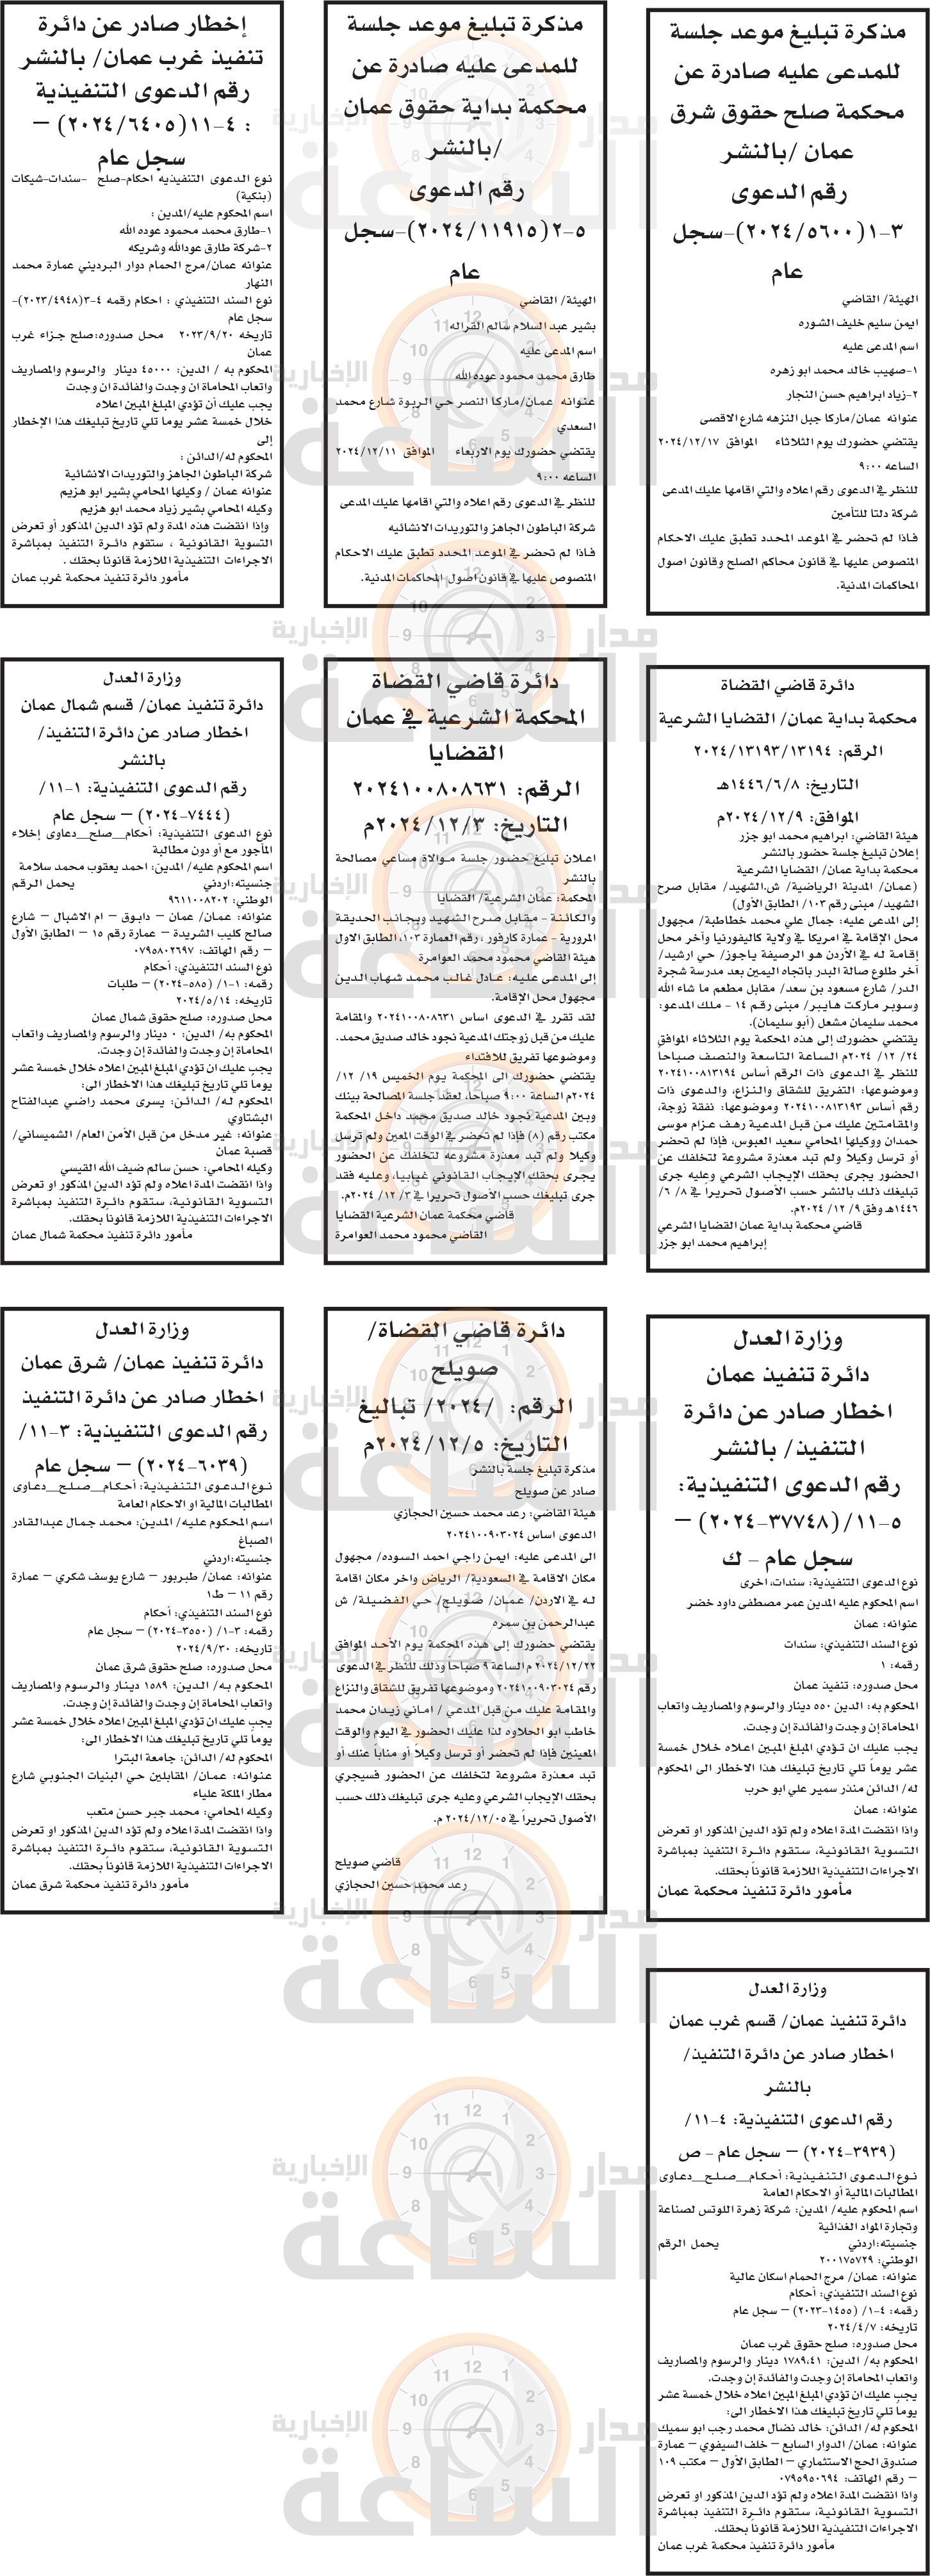 مذكرة تبليغ موعد جلسة
للمدعى عليه صادرة عن
محكمة صلح حقوق شرق
عمان /بالنشر
رقم الدعوى
٣-١(٢٠٢٤/٥٦٠٠)-سجل
عام
الهيئة/ القاضي
ايمن سليم خليف الشوره
اسم المدعى عليه
١-صهيب خالد محمد ابو زهره
٢-زياد ابراهيم حسن النجار
عنوانه عمان/ماركا جبل النزهه شارع الاقصى
يقتضي حضورك يوم الثلاثاء الموافق ٢٠٢٤/١٢/١٧
الساعه ٩:٠٠
للنظر في الدعوى رقم اعلاه والتي اقامها عليك المدعى
شركة دلتا للتأمين
فاذا لم تحضر في الموعد المحدد تطبق عليك الاحكام
المنصوص عليها في قانون محاكم الصلح وقانون اصول
المحاكمات المدنية.
مذكرة تبليغ موعد جلسة
للمدعى عليه صادرة عن
محكمة بداية حقوق عمان
/بالنشر
رقم الدعوى
٥-٢(٢٠٢٤/١١٩١٥)-سجل
عام
الهيئة/ القاضي
بشير عبد السلام سالم القراله
اسم المدعى عليه
طارق محمد محمود عوده الله
عنوانه عمان/ماركا النصر حي الربوة شارع محمد
السعدي
يقتضي حضورك يوم الاربعاء الموافق ٢٠٢٤/١٢/١١
الساعه ٩:٠٠
للنظر في الدعوى رقم اعلاه والتي اقامها عليك المدعى
شركة الباطون الجاهز والتوريدات الانشائيه
فاذا لم تحضر في الموعد المحدد تطبق عليك الاحكام
المنصوص عليها في قانون اصول المحاكمات المدنية.
إخطار صادر عن دائرة
تنفيذ غرب عمان/ بالنشر
رقم الدعوى التنفيذية
: ٤-١١(٢٠٢٤/٦٤٠٥) –
سجل عام
نوع الدعوى التنفيذيه احكام-صلح -سندات-شيكات
(بنكية)
اسم المحكوم عليه/المدين :
١-طارق محمد محمود عوده الله
٢-شركة طارق عودالله وشريكه
عنوانه عمان/مرج الحمام دوار البرديني عمارة محمد
النهار
نوع السند التنفيذي : احكام رقمه ٤-٣(٢٠٢٣/٤٩٤٨)-
سجل عام
تاريخه ٢٠٢٣/٩/٢٠ محل صدوره:صلح جزاء غرب
عمان
المحكوم به / الدين: ٤٥٠٠٠ دينار والرسوم والمصاريف
واتعاب المحاماة ان وجدت والفائدة ان وجدت
يجب عليك أن تؤدي المبلغ المبين اعلاه
خلال خمسة عشر يوما تلي تاريخ تبليغك هذا الإخطار
إلى
المحكوم له/الدائن :
شركة الباطون الجاهز والتوريدات الانشائية
عنوانه عمان / وكيلها المحامي بشير ابو هزيم
وكيله المحامي بشير زياد محمد ابو هزيم
وإذا انقضت هذه المدة ولم تؤد الدين المذكور أو تعرض
التسوية القانونية ، ستقوم دائرة التنفيذ بمباشرة
الاجراءات التنفيذية اللازمة قانونا بحقك .
مأمور دائرة تنفيذ محكمة غرب عمان
دائرة قاضي القضاة
محكمة بداية عمان/ القضايا الشرعية
الرقم: ٢٠٢٤/١٣١٩٣/١٣١٩٤
التاريخ: ١٤٤٦/٦/٨هـ
الموافق: ٢٠٢٤/١٢/٩م
هيئة القاضي: ابراهيم محمد ابو جزر
إعلان تبليغ جلسة حضور بالنشر
محكمة بداية عمان/ القضايا الشرعية
(عمان/ المدينة الرياضية/ ش.الشهيد/ مقابل صرح
الشهيد/ مبنى رقم ١٠٣/ الطابق الأول)
إلى المدعى عليه: جمال علي محمد خطاطبة/ مجهول
محل الإقامة في امريكا في ولاية كاليفورنيا وآخر محل
إقامة له في الأردن هو الرصيفة ياجوز/ حي ارشيد/
آخر طلوع صالة البدر باتجاه اليمين بعد مدرسة شجرة
الدر/ شارع مسعود بن سعد/ مقابل مطعم ما شاء الله
وسوبر ماركت هايبر/ مبنى رقم ١٤ - ملك المدعو:
محمد سليمان مشعل (أبو سليمان).
يقتضي حضورك إلى هذه المحكمة يوم الثلاثاء الموافق
٢٤/ ١٢/ ٢٠٢٤م الساعة التاسعة والنصف صباحا
للنظر في الدعوى ذات الرقم أساس ٢٠٢٤١٠٠٨١٣١٩٤
وموضوعها: التفريق للشقاق والنزاع، والدعوى ذات
رقم أساس ٢٠٢٤١٠٠٨١٣١٩٣ وموضوعها: نفقة زوجة،
والمقامتين عليك من قبل المدعية رهف عزام موسى
حمدان ووكيلها المحامي سعيد العبوس، فإذا لم تحضر
أو ترسل وكيلاً ولم تبد معذرة مشروعة لتخلفك عن
الحضور يجرى بحقك الإيجاب الشرعي وعليه جرى
تبليغك ذلك بالنشر حسب الأصول تحريراً في ٨/ ٦/
١٤٤٦هـ وفق ٩/ ١٢/ ٢٠٢٤م.
قاضي محكمة بداية عمان القضايا الشرعي
إبراهيم محمد ابو جزر
دائرة قاضي القضاة
المحكمة الشرعية في عمان
القضايا
الرقم: ٢٠٢٤١٠٠٨٠٨٦٣١
التاريخ: ٢٠٢٤/١٢/٣م
اعلان تبليغ حضور جلسة موالاة مساعي مصالحة
بالنشر
المحكمة: عمان الشرعية/ القضايا
والكائنة - مقابل صرح الشهيد وبجانب الحديقة
المرورية - عمارة كارفور ، رقم العمارة ١٠٣، الطابق الاول
هيئة القاضي محمود محمد العوامرة
إلى المدعى عليه: عادل غالب محمد شهاب الدين
مجهول محل الإقامة.
لقد تقرر في الدعوى اساس ٢٠٢٤١٠٠٨٠٨٦٣١ والمقامة
عليك من قبل زوجتك المدعية نجود خالد صديق محمد.
وموضوعها تفريق للافتداء
يقتضي حضورك الى المحكمة يوم الخميس ١٩/ ١٢/
٢٠٢٤م الساعة ٩:٠٠ صباحا، لعقد جلسة المصالحة بينك
وبين المدعية نجود خالد صديق محمد داخل المحكمة
مكتب رقم (٨) فإذا لم تحضر في الوقت المعين ولم ترسل
وكيلا ولم تبد معذرة مشروعه لتخلفك عن الحضور
يجرى بحقك الإيجاب القانوني غيابيا، وعليه فقد
جرى تبليغك حسب الأصول تحريرا في ٣/ ١٢/ ٢٠٢٤م.
قاضي محكمة عمان الشرعية القضايا
القاضي محمود محمد العوامرة
وزارة العدل
دائرة تنفيذ عمان/ قسم شمال عمان
اخطار صادر عن دائرة التنفيذ/
بالنشر
رقم الدعوى التنفيذية: ١-١١/
(٧٤٤٤-٢٠٢٤) – سجل عام
نوع الدعوى التنفيذية: أحكام__صلح__دعاوى إخلاء
المأجور مع أو دون مطالبة
اسم المحكوم عليه/ المدين: احمد يعقوب محمد سلامة
جنسيته:اردني يحمل الرقم
الوطني: ٩٦١١٠٠٨٢٠٢
عنوانه: عمان/ عمان – دابوق – ام الاشبال – شارع
صالح كليب الشريدة – عمارة رقم ١٥ – الطابق الأول
– رقم الهاتف: ٠٧٩٥٨٠٢٦٩٧
نوع السند التنفيذي: أحكام
رقمه: ١-١/ (٥٨٥-٢٠٢٤) – طلبات
تاريخه: ٢٠٢٤/٥/١٤
محل صدوره: صلح حقوق شمال عمان
المحكوم به/ الدين: ٠ دينار والرسوم والمصاريف واتعاب
المحاماة إن وجدت والفائدة إن وجدت.
يجب عليك ان تؤدي المبلغ المبين اعلاه خلال خمسة عشر
يوماً تلي تاريخ تبليغك هذا الاخطار الى:
المحكوم له/ الدائن: يسرى محمد راضي عبدالفتاح
البشتاوي
عنوانه: غير مدخل من قبل الأمن العام/ الشميساني/
قصبة عمان
وكيله المحامي: حسن سالم ضيف الله القيسي
واذا انقضت المدة اعلاه ولم تؤد الدين المذكور او تعرض
التسوية القانونية، ستقوم دائرة التنفيذ بمباشرة
الاجراءات التنفيذية اللازمة قانوناً بحقك.
مأمور دائرة تنفيذ محكمة شمال عمان
وزارة العدل
دائرة تنفيذ عمان
اخطار صادر عن دائرة
التنفيذ/ بالنشر
رقم الدعوى التنفيذية:
٥-١١/(٣٧٧٤٨-٢٠٢٤) –
سجل عام - ك
نوع الدعوى التنفيذية: سندات، اخرى
اسم المحكوم عليه المدين عمر مصطفى داود خضر
عنوانه: عمان
نوع السند التنفيذي: سندات
رقمه: ١
محل صدوره: تنفيذ عمان
المحكوم به: الدين ٥٥٠ دينار والرسوم والمصاريف واتعاب
المحاماة إن وجدت والفائدة إن وجدت.
يجب عليك ان تؤدي المبلغ المبين اعلاه خلال خمسة
عشر يوماً تلي تاريخ تبليغك هذا الاخطار الى المحكوم
له/ الدائن منذر سمير علي ابو حرب
عنوانه: عمان
واذا انقضت المدة اعلاه ولم تؤد الدين المذكور او تعرض
التسوية القانونية، ستقوم دائرة التنفيذ بمباشرة
الاجراءات التنفيذية اللازمة قانوناً بحقك.
مأمور دائرة تنفيذ محكمة عمان
دائرة قاضي القضاة/
صويلح
الرقم: /٢٠٢٤/ تباليغ
التاريخ: ٢٠٢٤/١٢/٥م
مذكرة تبليغ جلسة بالنشر
صادر عن صويلح
هيئة القاضي: رعد محمد حسين الحجازي
الدعوى اساس ٢٠٢٤١٠٠٩٠٣٠٢٤
الى المدعى عليه: ايمن راجي احمد السوده/ مجهول
مكان الاقامة في السعودية/ الرياض واخر مكان اقامة
له في الاردن/ عمان/ صويلح/ حي الفضيلة/ ش
عبدالرحمن بن سمره
يقتضي حضورك إلى هذه المحكمة يوم الأحد الموافق
٢٠٢٤/١٢/٢٢ م الساعة ٩ صباحا وذلك للنظر في الدعوى
رقم ٢٠٢٤١٠٠٩٠٣٠٢٤ وموضوعها تفريق للشقاق والنزاع
والمقامة عليك من قبل المدعي / اماني زيدان محمد
خاطب ابو الحلاوه لذا عليك الحضور في اليوم والوقت
المعينين فإذا لم تحضر أو ترسل وكيلاً أو مناباً عنك أو
تبد معذرة مشروعة لتخلفك عن الحضور فسيجري
بحقك الإيجاب الشرعي وعليه جرى تبليغك ذلك حسب
الأصول تحريراً في ٢٠٢٤/١٢/٠٥ م.
قاضي صويلح
رعد محمد حسين الحجازي
وزارة العدل
دائرة تنفيذ عمان/ شرق عمان
اخطار صادر عن دائرة التنفيذ
رقم الدعوى التنفيذية: ٣-١١/
(٦٠٣٩-٢٠٢٤) – سجل عام
نوع الدعوى التنفيذية: أحكام__صلح__دعاوى
المطالبات المالية او الاحكام العامة
اسم المحكوم عليه/ المدين: محمد جمال عبدالقادر
الصباغ
جنسيته:اردني
عنوانه: عمان/ طبربور – شارع يوسف شكري – عمارة
رقم ١١ – ط١
نوع السند التنفيذي: أحكام
رقمه: ٣-١/ (٣٥٥٠-٢٠٢٤) – سجل عام
تاريخه: ٢٠٢٤/٩/٣٠
محل صدوره: صلح حقوق شرق عمان
المحكوم به/ الدين: ١٥٨٩ دينار والرسوم والمصاريف
واتعاب المحاماة إن وجدت والفائدة إن وجدت.
يجب عليك ان تؤدي المبلغ المبين اعلاه خلال خمسة عشر
يوماً تلي تاريخ تبليغك هذا الاخطار الى:
المحكوم له/ الدائن: جامعة البترا
عنوانه: عمان/ المقابلين حي البنيات الجنوبي شارع
مطار الملكة علياء
وكيله المحامي: محمد جبر حسن متعب
واذا انقضت المدة اعلاه ولم تؤد الدين المذكور او تعرض
التسوية القانونية، ستقوم دائرة التنفيذ بمباشرة
الاجراءات التنفيذية اللازمة قانوناً بحقك.
مأمور دائرة تنفيذ محكمة شرق عمان
وزارة العدل
دائرة تنفيذ عمان/ قسم غرب عمان
اخطار صادر عن دائرة التنفيذ/
بالنشر
رقم الدعوى التنفيذية: ٤-١١/
(٣٩٣٩-٢٠٢٤) – سجل عام - ص
نوع الدعوى التنفيذية: أحكام__صلح__دعاوى
المطالبات المالية أو الاحكام العامة
اسم المحكوم عليه/ المدين: شركة زهرة اللوتس لصناعة
وتجارة المواد الغذائية
جنسيته:اردني يحمل الرقم
الوطني: ٢٠٠١٧٥٧٢٩
عنوانه: عمان/ مرج الحمام اسكان عالية
نوع السند التنفيذي: أحكام
رقمه: ٤-١/ (١٤٥٥-٢٠٢٣) – سجل عام
تاريخه: ٢٠٢٤/٤/٧
محل صدوره: صلح حقوق غرب عمان
المحكوم به/ الدين: ١٧٨٩،٤١ دينار والرسوم والمصاريف
واتعاب المحاماة إن وجدت والفائدة إن وجدت.
يجب عليك ان تؤدي المبلغ المبين اعلاه خلال خمسة عشر
يوماً تلي تاريخ تبليغك هذا الاخطار الى:
المحكوم له/ الدائن: خالد نضال محمد رجب ابو سميك
عنوانه: عمان/ الدوار السابع – خلف السيفوي – عمارة
صندوق الحج الاستثماري – الطابق الأول – مكتب ١٠٩
– رقم الهاتف: ٠٧٩٥٩٥٠٦٩٤
واذا انقضت المدة اعلاه ولم تؤد الدين المذكور او تعرض
التسوية القانونية، ستقوم دائرة التنفيذ بمباشرة
الاجراءات التنفيذية اللازمة قانوناً بحقك.
مأمور دائرة تنفيذ محكمة غرب عمان
مدار الساعة الإخبارية